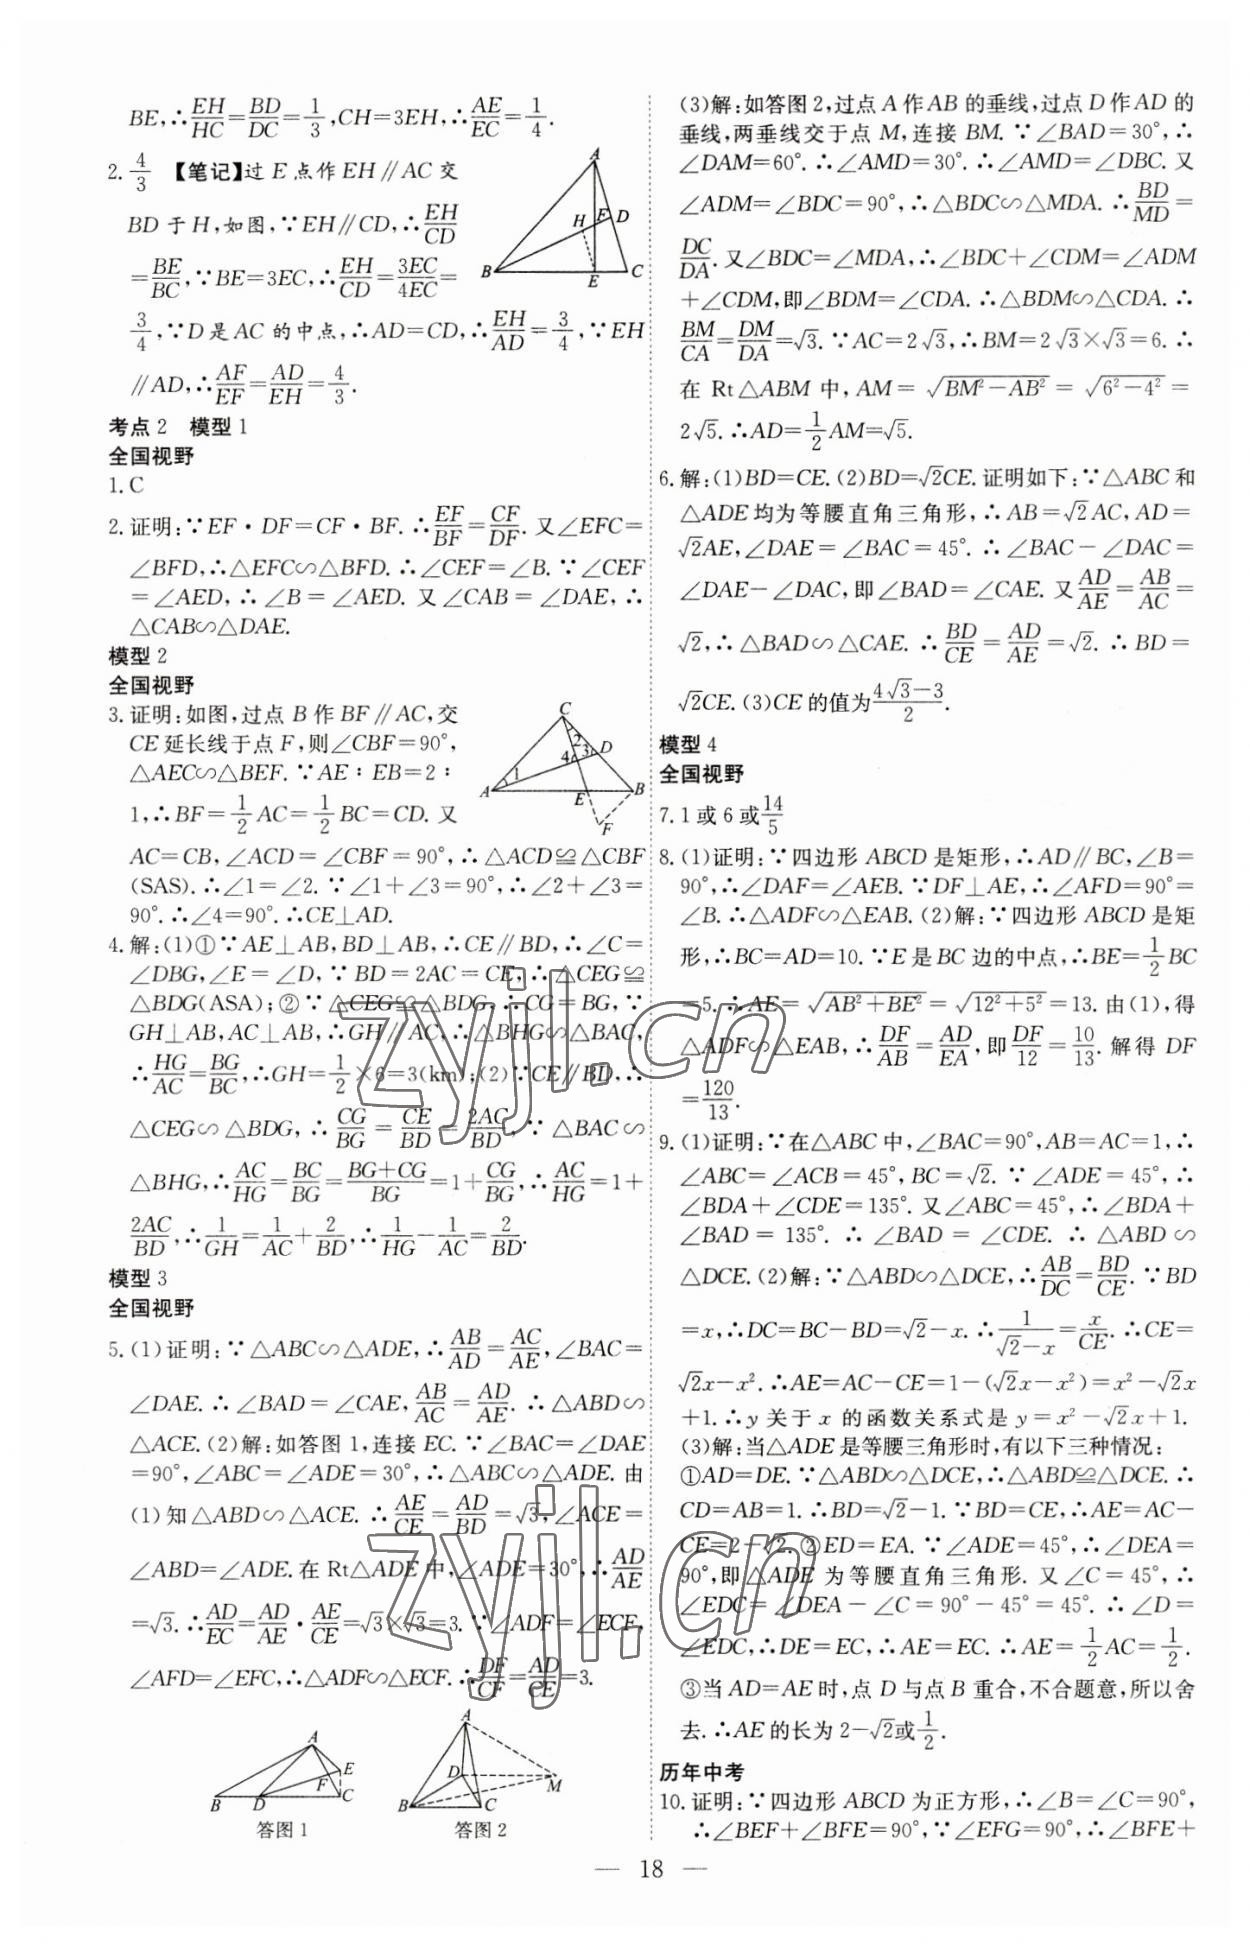 BE,∴EH/HC=BD/DC=1/3,CH=3EH,∴AE/EC=1/4.
2. 4/3 【笔记】过 E 点作 EH∥AC 交
BD 于 H,如图,∵EH∥CD,∴EH/CD
=BE/BC,∵BE=3EC,∴EH/CD=3EC/4EC=
3/4,∵D 是 AC 的中点,∴AD=CD,∴EH/AD=3/4,∵EH
∥AD,∴AF/EF=AD/EH=4/3.
A
H F D
B E C
考点2 模型1
全国视野
1.C
2.证明:∵EF·DF=CF·BF.∴EF/BF=CF/DF.又∠EFC=
∠BFD,∴△EFC∽△BFD.∴∠CEF=∠B.∵∠CEF
=∠AED,∴∠B=∠AED.又∠CAB=∠DAE,∴
△CAB∽△DAE.
模型2
全国视野
3.证明:如图,过点 B 作 BF∥AC,交
CE 延长线于点 F,则∠CBF=90°,
△AEC∽△BEF.∵AE∶EB=2∶
1,∴BF=1/2AC=1/2BC=CD.又
AC=CB,∠ACD=∠CBF=90°,∴△ACD≌△CBF
(SAS).∴∠1=∠2.∵∠1+∠3=90°,∴∠2+∠3=
90°.∴∠4=90°.∴CE⊥AD.
C
2
4 3 D
A 1 E B
F
4.解:(1)①∵AE⊥AB,BD⊥AB,∴CE∥BD,∴∠C=
∠DBG,∠E=∠D,∵BD=2AC=CE,∴△CEG≌
△BDG(ASA);②∵△CEG≌△BDG,∴CG=BG,∵
GH⊥AB,AC⊥AB,∴GH∥AC,∴△BHG∽△BAC,
∴HG/AC=BG/BC,∴GH=1/2×6=3(km);(2)∵CE∥BD,∴
△CEG∽△BDG,∴CG/BG=CE/BD=2AC/BD,∵△BAC∽
△BHG,∴AC/HG=BC/BG=(BG+CG)/BG=1+CG/BG,∴AC/HG=1+
2AC/BD,∴1/GH=1/AC+2/BD,∴1/HG-1/AC=2/BD.
模型3
全国视野
5.(1)证明:∵△ABC∽△ADE,∴AB/AD=AC/AE,∠BAC=
∠DAE.∴∠BAD=∠CAE,AB/AC=AD/AE.∴△ABD∽
△ACE.(2)解:如答图1,连接 EC.∵∠BAC=∠DAE
=90°,∠ABC=∠ADE=30°,∴△ABC∽△ADE.由
(1)知△ABD∽△ACE.∴AE/CE=AD/BD=√3,∠ACE=
∠ABD=∠ADE.在 Rt△ADE 中,∠ADE=30°,∴AD/AE
=√3.∴AD/EC=AD/AE·AE/CE=√3×√3=3.∵∠ADF=∠ECF,
∠AFD=∠EFC,∴△ADF∽△ECF.∴DF/CF=AD/CE=3.
A
E
F
B D C
答图1
A
D M
B C
答图2
(3)解:如答图2,过点 A 作 AB 的垂线,过点 D 作 AD 的
垂线,两垂线交于点 M,连接 BM.∵∠BAD=30°,∴
∠DAM=60°.∴∠AMD=30°.∴∠AMD=∠DBC.又
∠ADM=∠BDC=90°,∴△BDC∽△MDA.∴BD/MD=
DC/DA.又∠BDC=∠MDA,∴∠BDC+∠CDM=∠ADM
+∠CDM,即∠BDM=∠CDA.∴△BDM∽△CDA.∴
BM/CA=DM/DA=√3.∵AC=2√3,∴BM=2√3×√3=6.∴
在 Rt△ABM 中,AM=√(BM²-AB²)=√(6²-4²)=
2√5.∴AD=1/2AM=√5.
6.解:(1)BD=CE.(2)BD=√2CE.证明如下:∵△ABC 和
△ADE 均为等腰直角三角形,∴AB=√2AC,AD=
√2AE,∠DAE=∠BAC=45°.∴∠BAC-∠DAC=
∠DAE-∠DAC,即∠BAD=∠CAE.又AD/AE=AB/AC=
√2,∴△BAD∽△CAE.∴BD/CE=AD/AE=√2.∴BD=
√2CE.(3)CE 的值为(4√3-3)/2.
模型4
全国视野
7.1或6或14/5
8.(1)证明:∵四边形 ABCD 是矩形,∴AD∥BC,∠B=
90°,∴∠DAF=∠AEB.∵DF⊥AE,∴∠AFD=90°=
∠B.∴△ADF∽△EAB.(2)解:∵四边形 ABCD 是矩
形,∴BC=AD=10.∵E 是 BC 边的中点,∴BE=1/2BC
=5.∴AE=√(AB²+BE²)=√(12²+5²)=13.由(1),得
△ADF∽△EAB,∴DF/AB=AD/EA,即DF/12=10/13.解得 DF
=120/13.
9.(1)证明:∵在△ABC 中,∠BAC=90°,AB=AC=1,∴
∠ABC=∠ACB=45°,BC=√2.∵∠ADE=45°,∴
∠BDA+∠CDE=135°.又∠ABC=45°,∴∠BDA+
∠BAD=135°.∴∠BAD=∠CDE.∴△ABD∽
△DCE.(2)解:∵△ABD∽△DCE,∴AB/DC=BD/CE.∵BD
=x,∴DC=BC-BD=√2-x.∴1/(√2-x)=x/CE.∴CE=
√2x-x².∴AE=AC-CE=1-(√2x-x²)=x²-√2x
+1.∴y 关于 x 的函数关系式是 y=x²-√2x+1.
(3)解:当△ADE 是等腰三角形时,有以下三种情况:
①AD=DE.∵△ABD∽△DCE,∴△ABD≌△DCE.∴
CD=AB=1.∴BD=√2-1.∵BD=CE,∴AE=AC-
CE=2-√2.②ED=EA.∵∠ADE=45°,∴∠DEA=
90°,即△ADE 为等腰直角三角形.又∠C=45°,∴
∠EDC=∠DEA-∠C=90°-45°=45°.∴∠D=
∠EDC,∴DE=EC,∴AE=EC.∴AE=1/2AC=1/2.
③当 AD=AE 时,点 D 与点 B 重合,不合题意,所以舍
去.∴AE 的长为2-√2或1/2.
历年中考
10.证明:∵四边形 ABCD 为正方形,∴∠B=∠C=90°,
∴∠BEF+∠BFE=90°,∵∠EFG=90°,∴∠BFE+
— 18 —
zyjl.cn
zyjl.cn